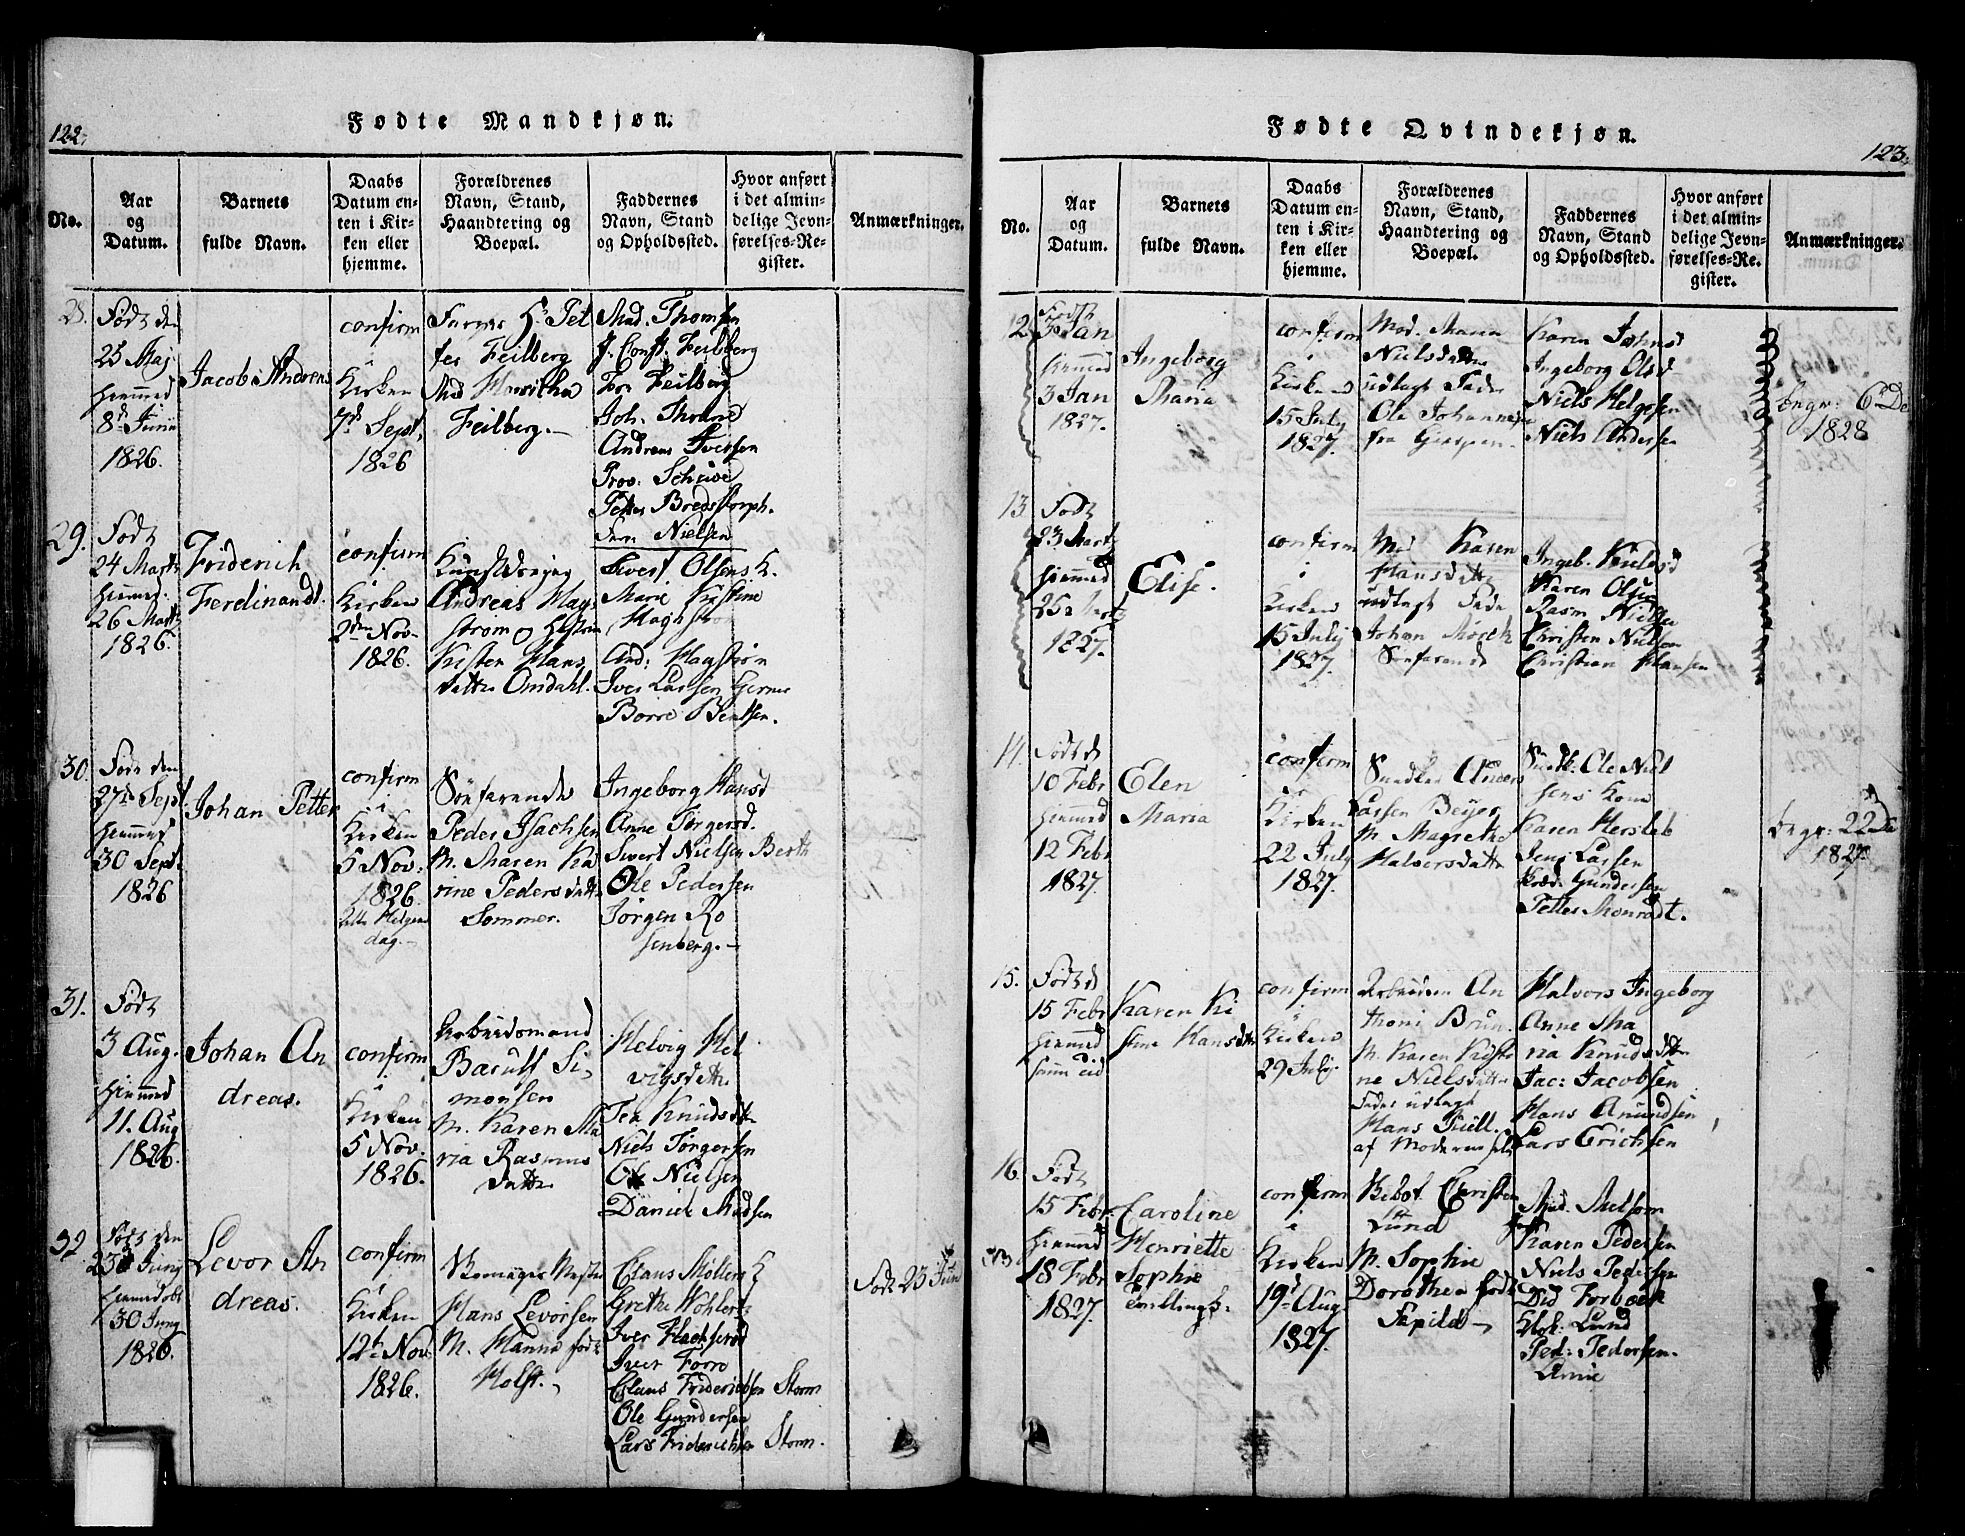 122.
Fødte Mandkjøn.
No.
Aar
og
Datum.
Barnets
fulde Navn.
Daabs
Datum en-
ten i Kir-
ken eller
hjemme.
Forældrenes
Navn, Stand,
Haandtering og
Boepæl.
Faddernes
Navn, Stand
og Opholdssted.
Hvor anført
i det almin-
delige Jevn-
førelses-Re-
gister.
Anmærkninger.
Født den
25 Maj
hiemmed
8d Junii
1826.
Jacob Andreas
confirm
i
Kirken
7d Sept.
1826
Pet
ter Feilberg
Mad
Feilberg.
Mad. Thomsen
J. Const. Feilberg
Feilberg
Joh. Thrane
Andreas Iversen
Prov: Scheive
Petter Bredstorph.
Nielsen
29.
Født
24 Marts
hiemmed.
26 Marts
1826.
Friderich
Ferdinandt.
confirm
i
Kirken
2den Nov.
1826.
Kunstdrejer
Andreas Mag
strøm og Hustrue
Kirsten Hans
datter Omdahl.
Sivert Olsens K.
Marie Kistine
Magnstrøm
And: Magstrøm
Iver Larsen
Borre Bentsen.
30.
Født den
27d Sept
hiemmed
30 Sept.
1826
Johan Petter
confirm
i
Kirken
5 Nov.
1826.
Alle Helgens
dag.
Søefarende
Peder Isachsen
M. Maren Ka
rine Pedersdatter
Sommer.
Ingeborg Hansd
Anne Jørgensd.
Sivert Nielsen Berth
Ole Pedersen
Jørgen Ro
senberg.
31.
Født
3 Aug.
hiemmed
11. Aug
1826.
Johan An
dreas.
confirm
i
Kirken
5 Nov.
1826.
Arbeidsmand
Barult Si
monsen
M. Karen Ma
ria Rasmus
datter
Helvig Hel
vigsdatter
Tea Knudsdtr
Niels Jørgersen
Ole Nielsen
Daniel Madsen
32.
Født den
23d Juny
hiemmedøbt
30 Juny
1826.
Levor An
dreas.
confirm
i
Kirken
12te Nov.
1826.
Hans Levorsen
M. Hanna fød
Holst.
Claus Møllers K
Grethe Wohlert
Iver
Iver Forre
Claus Friderichsen Storm
Ole Gundersen
Lars Friderichsen Storm.
Født 23 Jun
123.
Fødte Qvindekjøn.
No.
Aar
og
Datum.
Barnets
fulde Navn.
Daabs
Datum en-
ten i Kir-
ken eller
hjemme.
Forældrenes
Navn, Stand,
Haandtering og
Boepæl.
Faddernes
Navn, Stand
og Opholdssted.
Hvor anført
i det almin-
delige Jevn-
førelses-Re-
gister.
Anmærkninger.
12
Født
3 Jan
hiemmed
3 Jan
1827.
Ingeborg
Maria
confirm
i
Kirken
15 July
1827.
Mod. Maria
Nielsdatter
udlagt Fader
Ole Johannesen
fra Gierpen
Karen Johnsd
Ingeborg Olsd
Niels Helgesen
Niels Andersen
begr: 6 De
1828
13
Født
23 Marts
hiemmed
25 Marts
1827.
Elise.
confirm
i
Kirken
15 July
1827.
Mod Karen
Hansdatter
udlagt Fader
Johan Moeck
Søefarende
Ingeb.
Karen Olsd
Rasm Nielsen
Christen Nielsen
Christian Hansen
14.
Født d
10 Febr
hiemmed
12 Febr
1827.
Elen
Maria
confirm
i
Kirken
22 July
1827.
Anders
Larsen Beyer
M. Magrethe
Halversdatter
Ole Niel
sens Kone
Karen Hersleb
Jens Larsen
Gundersen
Petter Monrodt.
begr: 22 De
1827
15.
Født d
15 Febr
hiemmed
samme tid
Karen Ki
stine Hansdtr
confirm
i
Kirken
29 July.
Arbeidsm An
thoni Brun
M. Karen Kisti
ne Nielsdatter
Fader udlagt
Hans
af Moderen selv
Halvors Ingeborg
Anne Ma
ria Knudsdtr
Jac: Jacobsen
Hans Amundsen
Lars Erichsen
16.
Født
15 Febr.
hiemmed
18 Febr
1827.
Caroline
Henriette
Sophie
Tvillings.
confirm
i
Kirken
19d Aug
1827.
Christen
Lund
M. Sophie
Dorothea fød
Mad. Melsom
Karen Pedersen
Niels Pedersen
Did Forboek
Klok: Lund
Ped: Pedersen.